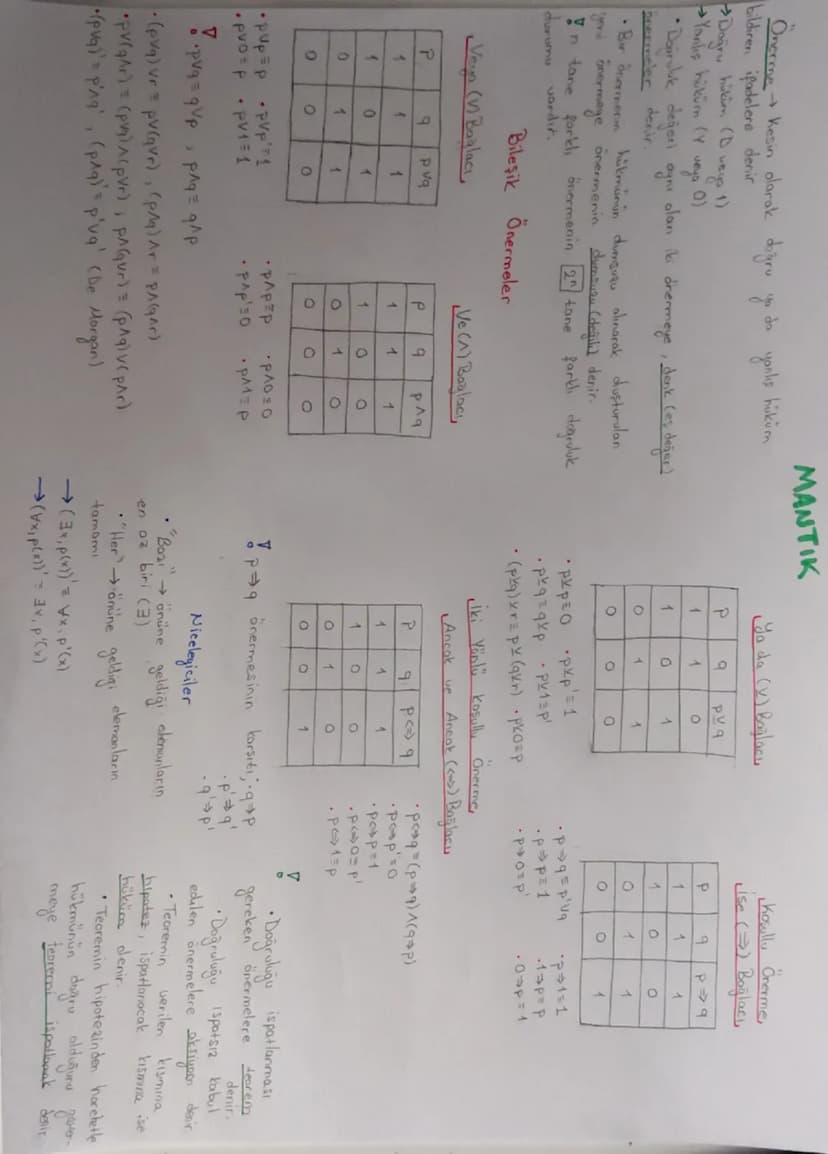 MANTIK
Önerme → Kesin olarak doğru ya da yanlış hüküm
bildiren ifadelere denir
→ Doğru hüküm (D veya 1)
→ Yanlış hüküm (Y veya 0)
• Doğruluk değeri aynı olan iki önermeye, denk (eş değer)
önermeler denir.
• Bir önermenin hükmünün olumsuzu alınarak oluşturulan
yeni önermeye önermenin olumsuzu (değili) denir.
n tane farklı önermenin 2ⁿ tane farklı doğruluk
durumu vardır.
Bileşik Önermeler
Veya (∨) Bağlacı
p q p∨q
1 1 1
1 0 1
0 1 1
0 0 0
• p∨p≡p • p∨p'≡1
• p∨0≡p • p∨1≡1
Ve (∧) Bağlacı
p q p∧q
1 1 1
1 0 0
0 1 0
0 0 0
• p∧p≡p • p∧0≡0
• p∧p'≡0 • p∧1≡p
• p∨q≡q∨p , p∧q≡q∧p
• (p∨q)∨r≡p∨(q∨r) , (p∧q)∧r≡p∧(q∧r)
• p∨(q∧r)≡(p∨q)∧(p∨r) , p∧(q∨r)≡(p∧q)∨(p∧r)
• (p∨q)'≡p'∧q' , (p∧q)'≡p'∨q' (De Morgan)
Ya da (⊻) Bağlacı
p q p⊻q
1 1 0
1 0 1
0 1 1
0 0 0
• p⊻p≡0 • p⊻p'≡1
• p⊻q≡q⊻p • p⊻1≡p'
• (p⊻q)⊻r≡p⊻(q⊻r) • p⊻0≡p
Koşullu Önerme
ise (⇒) Bağlacı
p q p⇒q
1 1 1
1 0 0
0 1 1
0 0 1
• p⇒q≡p'∨q • p⇒1≡1
• p⇒p≡1 • 1⇒p≡p
• p⇒0≡p' • 0⇒p≡1
İki Yönlü Koşullu Önerme
Ancak ve Ancak (⇔) Bağlacı
p q p⇔q
1 1 1
1 0 0
0 1 0
0 0 1
• p⇔q≡(p⇒q)∧(q⇒p)
• p⇔p'≡0
• p⇔p≡1
• p⇔0≡p'
• p⇔1≡p
p⇒q önermesinin karşıtı; • q⇒p
• p'⇒q'
• q'⇒p'
Niceleyiciler
• "Bazı" → önüne geldiği elemanların
en az biri (∃)
• "Her" → önüne geldiği elemanların
tamamı
→ (∃x, p(x))'≡∀x, p'(x)
→ (∀x, p(x))'≡∃x, p'(x)
• Doğruluğu ispatlanması
gereken önermelere teorem
denir.
• Doğruluğu ispatsız kabul
edilen önermelere aksiyom denir
• Teoremin verilen kısmına
hipotez, ispatlanacak kısmına ise
hüküm denir.
• Teoremin hipotezinden hareketle
hükmünün doğru olduğunu göster-
meye teoremi ispatlamak denir